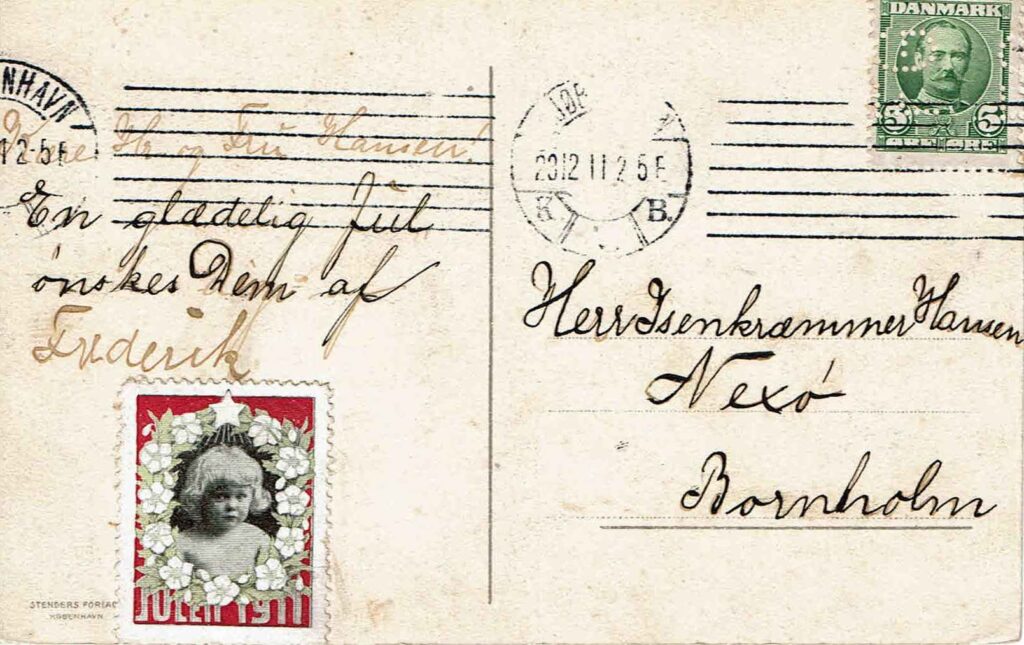 DANMARK
5 5
ØRE ØRE
NHAVN
12-5 E
KØB
23 12 11 2 5 E
K B.
Hr og Fru Hansen!
En glædelig Jul
ønskes Dem af
Frederik
Herr Isenkræmmer Hansen
Nexó
Bornholm
JULEN 1911
STENDERS FORLAG
KØBENHAVN